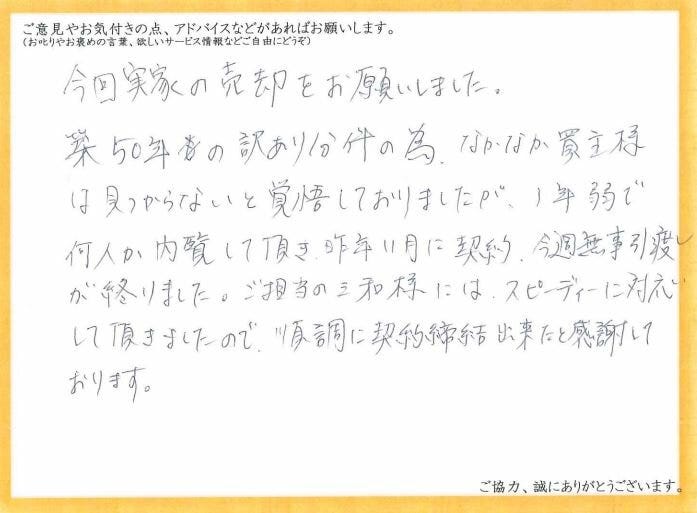 ご意見やお気付きの点、アドバイスなどがあればお願いします。
(お叱りやお褒めの言葉、欲しいサービス情報などご自由にどうぞ)
今回実家の売却をお願いしました。
築50年者の訳あり分件の為、なかなか買主様
は見つからないと覚悟しておりましたが、1年弱で
何人か内覧して頂き、昨年11月に契約、今週無事引渡し
が終りました。ご担当の三和様には、スピーディーに対応
して頂きましたので、順調に契約締結出来たと感謝して
おります。
ご協力、誠にありがとうございます。